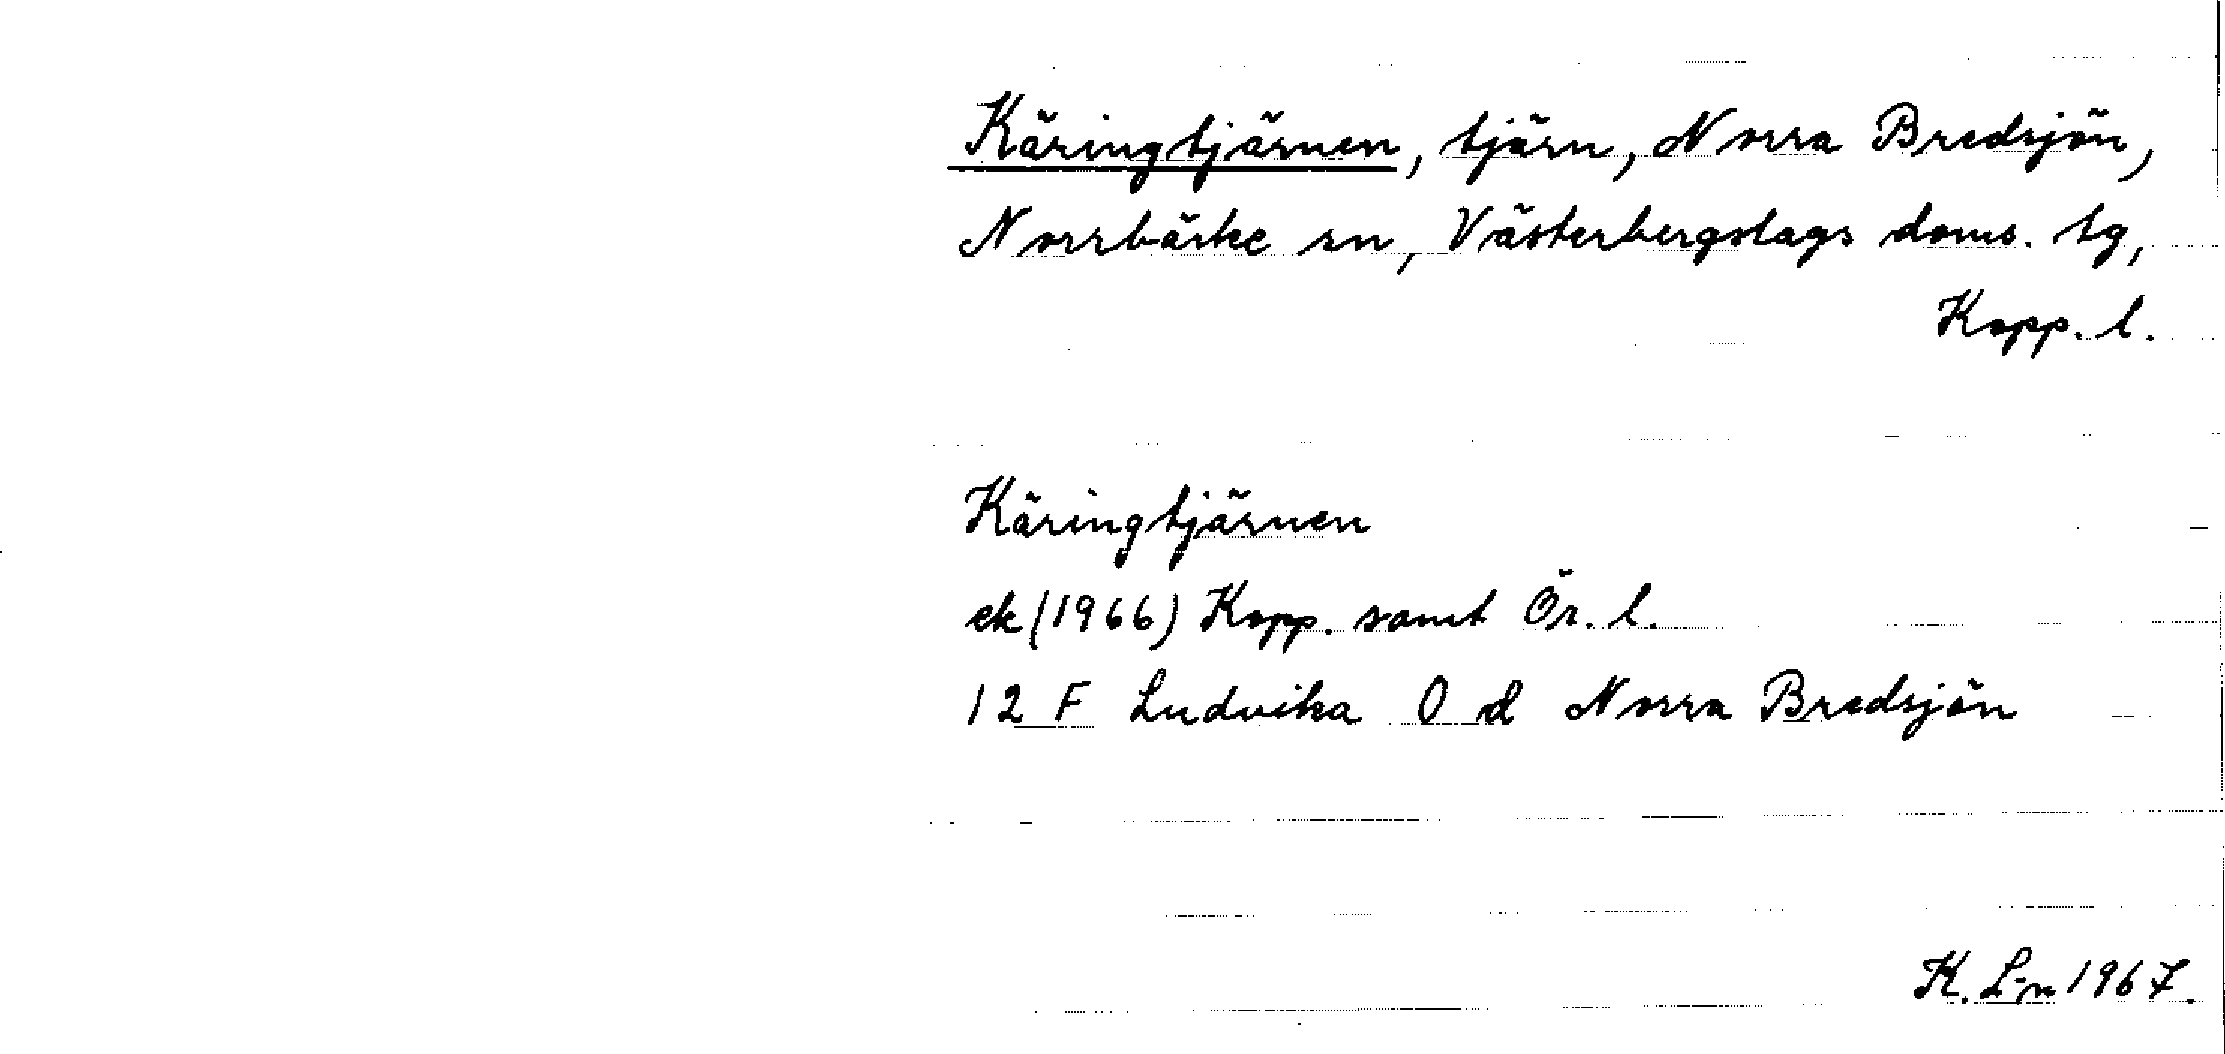 Käringtjärnen, tjärn, Norra Bredsjön,
Norrbärke sn, Västerbergslags doms. tg,
Kopp. l.
Käringtjärnen
ek (1966) Kopp. samt Ör. l.
12 F Ludvika 0 d Norra Bredsjön
K. L-n 1967.